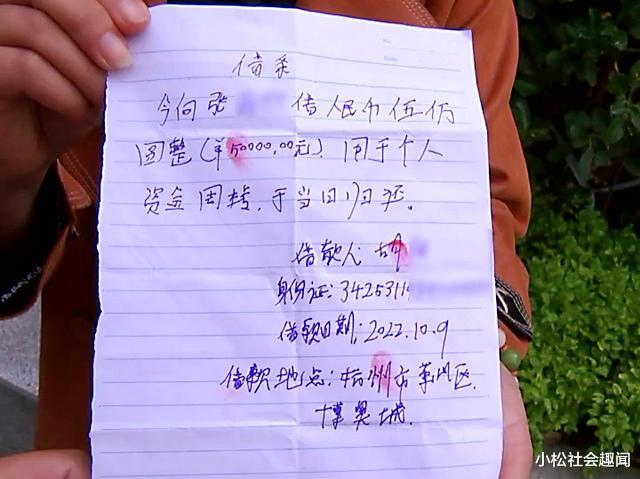 No.
Date
借条
今向张 借人民币伍
圆整(¥50000.00元)用于个人
资金周转,于当日归还。
借款人 胡
身份证:3425311
借款日期:2022.10.9
借款地点:杭州市萧山区.
博奥城.
小松社会趣闻